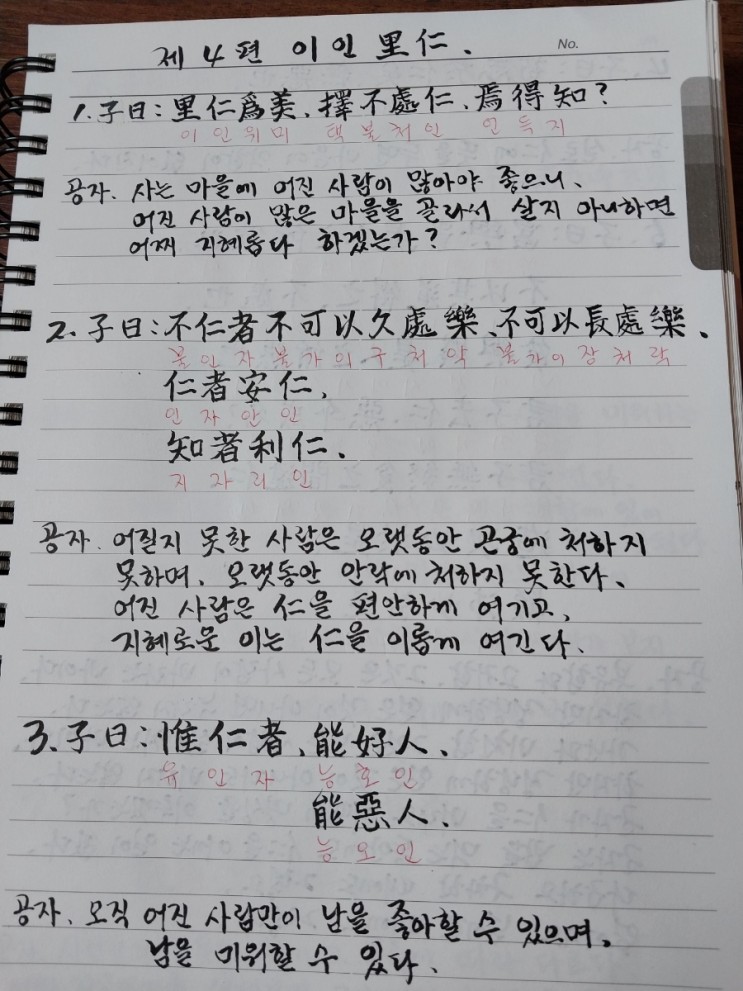 제 4 편 이 인 里仁.
No.
1. 子曰: 里仁爲美、擇不處仁、焉得知?
이 인 위 미 택 불 처 인 언 득 지
공자. 사는 마을에 어진 사람이 많아야 좋으니、
어진 사람이 많은 마을을 골라서 살지 아니하면
어찌 지혜롭다 하겠는가?
2. 子曰: 不仁者不可以久處樂、不可以長處樂、
불 인 자 불 가 이 구 처 약 불 가 이 장 처 락
仁者安仁、
인 자 안 인
知者利仁、
지 자 리 인
공자. 어질지 못한 사람은 오랫동안 곤궁에 처하지
못하며、오랫동안 안락에 처하지 못한다、
어진 사람은 仁을 편안하게 여기고、
지혜로운 이는 仁을 이롭게 여긴다、
3. 子曰: 惟仁者、能好人、
유 인 자 능 호 인
能惡人、
능 오 인
공자. 오직 어진 사람만이 남을 좋아할 수 있으며、
남을 미워할 수 있다、